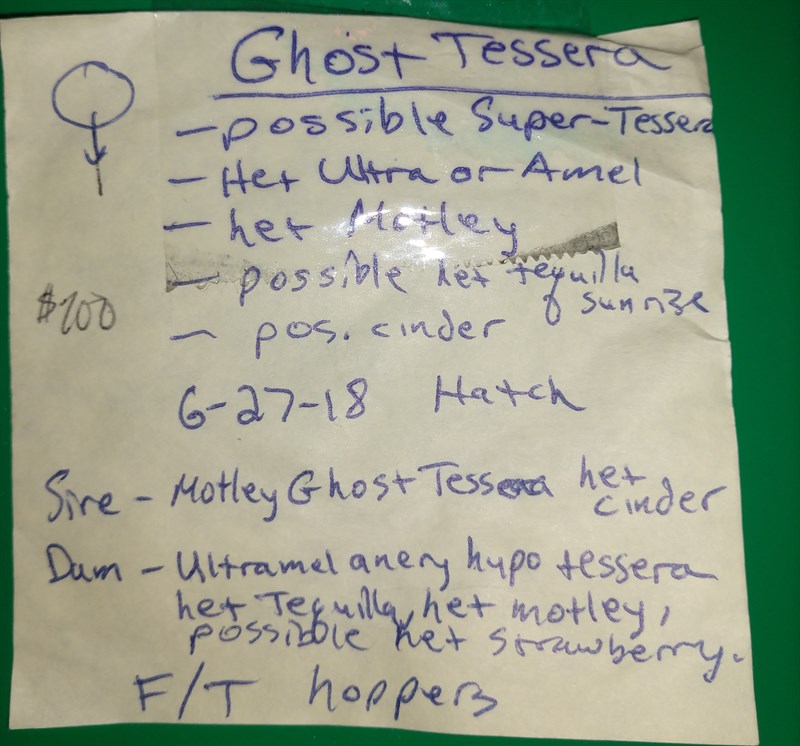 Ghost Tessera
- possible Super-Tessera
- Het Ultra or Amel
- het Motley
- possible het tequilla
sunrise
- pos. cinder
$100
6-27-18 Hatch
Sire - Motley Ghost Tessera het
cinder
Dam - Ultramel anery hypo tessera
het Tequilla, het motley,
possibble het strawberry.
F/T hoppers